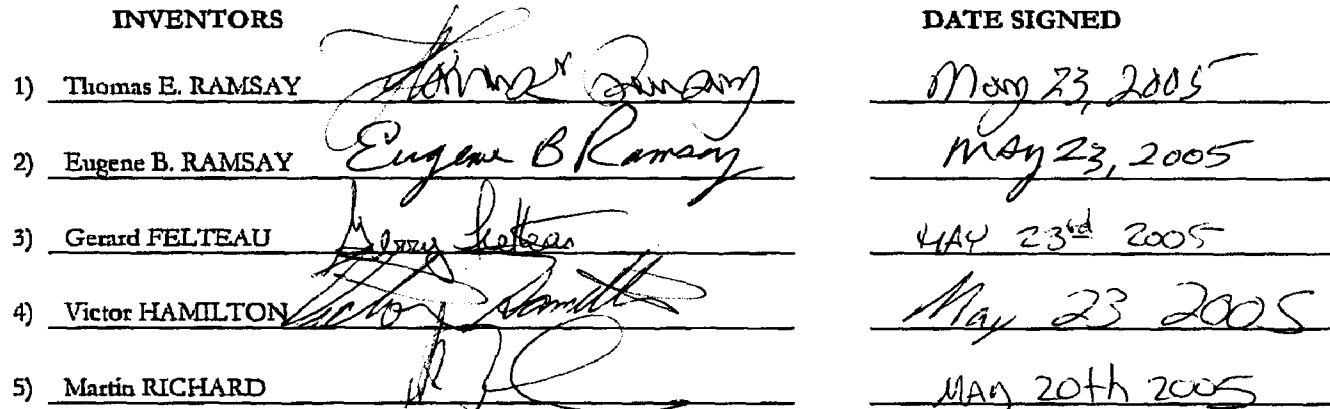 INVENTORS DATE SIGNED
1) Thomas E. RAMSAY Thomas Ramsay May 23, 2005
2) Eugene B. RAMSAY Eugene B Ramsay May 23, 2005
3) Gerard FELTEAU Gerry Felteau MAY 23rd 2005
4) Victor HAMILTON Victor Hamilton May 23 2005
5) Martin RICHARD MAY 20th 2005